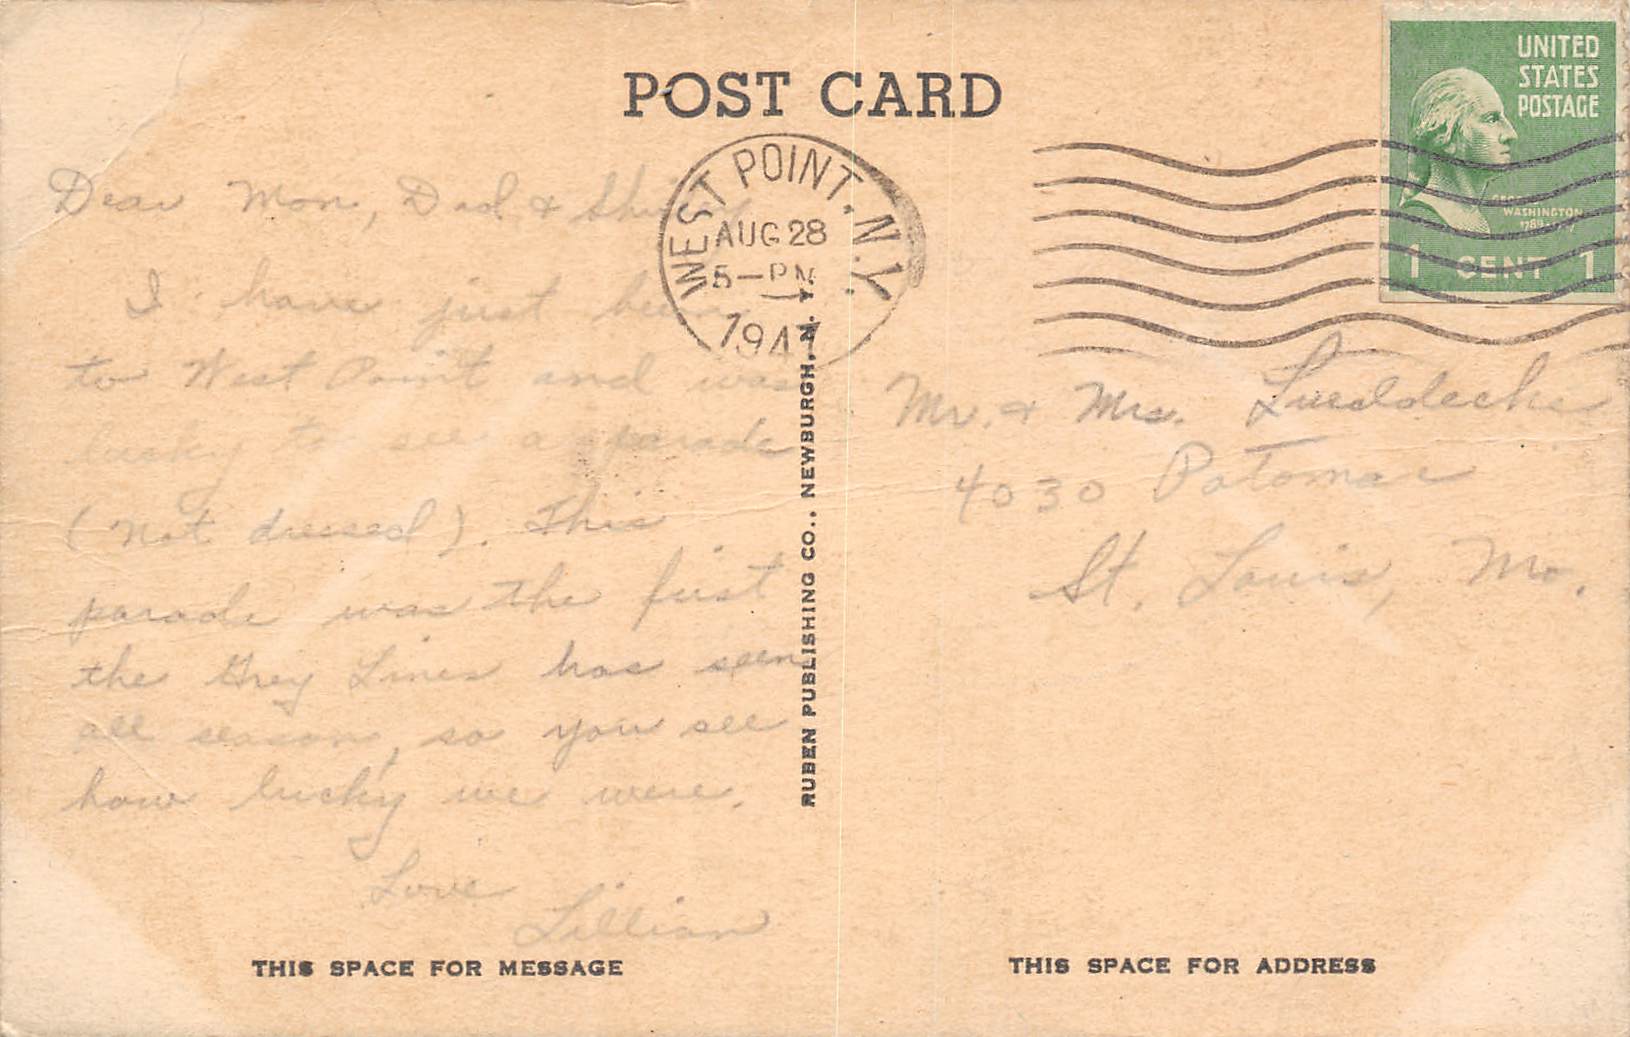 POST CARD
UNITED
STATES
POSTAGE
WASHINGTON
1 CENT 1
WEST POINT, N.Y.
AUG 28
5-PM
1947
Dear Mom, Dad &
I have just been
to West Point and was
lucky to see a parade
(not dressed). This
parade was the first
the Grey Lines has seen
all season, so you see
how lucky we were.
Love
Lillian
THIS SPACE FOR MESSAGE
RUBEN PUBLISHING CO., NEWBURGH, N. Y.
Mr. & Mrs. Lueddecke
4030 Potomac
St. Louis, Mo.
THIS SPACE FOR ADDRESS